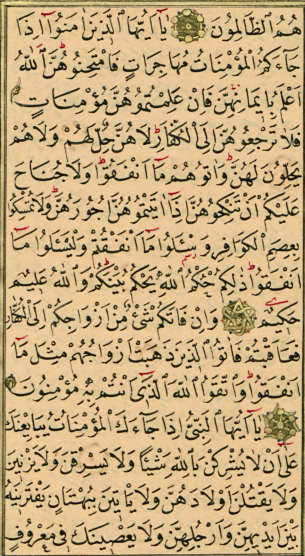 هُمُ الظَّالِمُونَ يَا اَيُّهَا الَّذِينَ اٰمَنُوا اِذَا
جَاءَكُمُ الْمُؤْمِنَاتُ مُهَاجِرَاتٍ فَامْتَحِنُوهُنَّ اَللّٰهُ
اَعْلَمُ بِاِيمَانِهِنَّ فَاِنْ عَلِمْتُمُوهُنَّ مُؤْمِنَاتٍ
فَلَا تَرْجِعُوهُنَّ اِلَى الْكُفَّارِ لَاهُنَّ حِلٌّ لَهُمْ وَلَاهُمْ
يَحِلُّونَ لَهُنَّ وَاٰتُوهُمْ مَا اَنْفَقُوا وَلَا جُنَاحَ
عَلَيْكُمْ اَنْ تَنْكِحُوهُنَّ اِذَا اٰتَيْتُمُوهُنَّ اُجُورَهُنَّ وَلَا تُمْسِكُوا
بِعِصَمِ الْكَوَافِرِ وَسْـَٔلُوا مَا اَنْفَقْتُمْ وَلْيَسْـَٔلُوا مَا
اَنْفَقُوا ذٰلِكُمْ حُكْمُ اللّٰهِ يَحْكُمُ بَيْنَكُمْ وَاللّٰهُ عَلِيمٌ
حَكِيمٌ وَاِنْ فَاتَكُمْ شَيْءٌ مِنْ اَزْوَاجِكُمْ اِلَى الْكُفَّارِ
فَعَاقَبْتُمْ فَاٰتُوا الَّذِينَ ذَهَبَتْ اَزْوَاجُهُمْ مِثْلَ مَا
اَنْفَقُوا وَاتَّقُوا اللّٰهَ الَّذِي اَنْتُمْ بِهِ مُؤْمِنُونَ
يَا اَيُّهَا النَّبِيُّ اِذَا جَاءَكَ الْمُؤْمِنَاتُ يُبَايِعْنَكَ
عَلٰى اَنْ لَا يُشْرِكْنَ بِاللّٰهِ شَيْـًٔا وَلَا يَسْرِقْنَ وَلَا يَزْنِينَ
وَلَا يَقْتُلْنَ اَوْلَادَهُنَّ وَلَا يَاْتِينَ بِبُهْتَانٍ يَفْتَرِينَهُ
بَيْنَ اَيْدِيهِنَّ وَاَرْجُلِهِنَّ وَلَا يَعْصِينَكَ فِي مَعْرُوفٍ